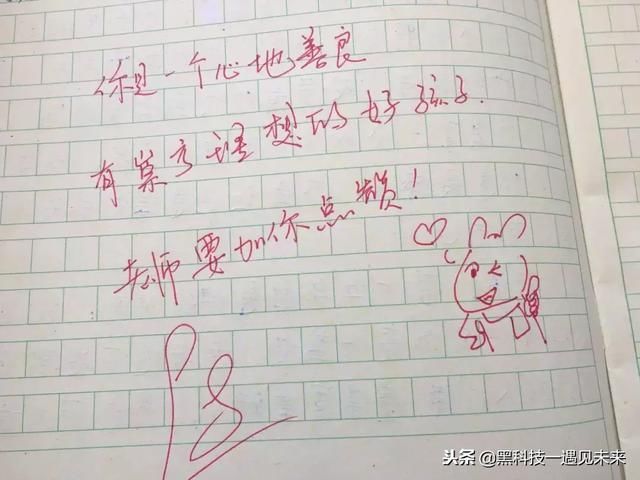 你是一个心地善良
有崇高理想的好孩子.
老师要为你点赞!
头条 @黑科技一遇见未来